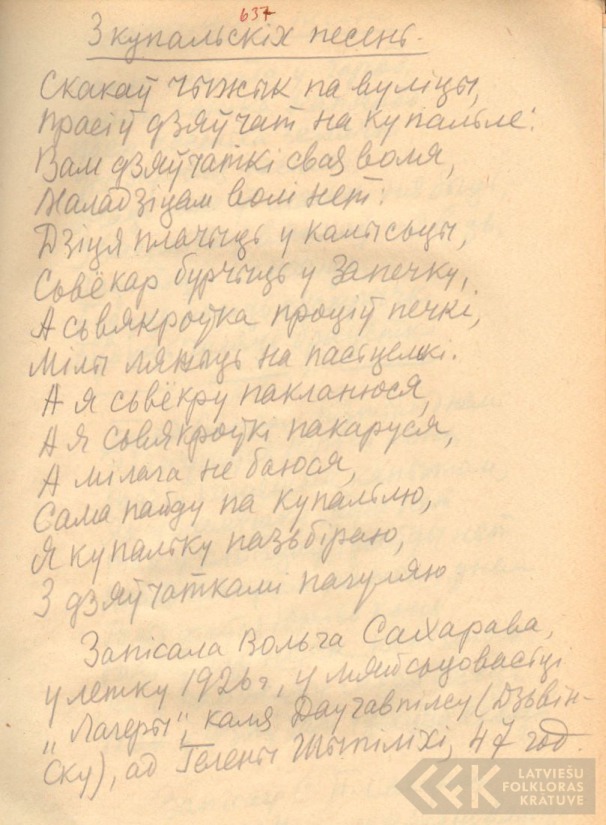 637
З купальскіх песень.
Скакаў чыжык па вуліцы,
Прасіў дзяўчат на купальле:
Вам дзяўчаткі свая воля,
Маладзіцам волі нет.
Дзіця плачыць у калысцы,
Сьвёкар бурчыць у запечку,
А сьвякроўка проціў печкі,
Мілы ляжыць на пасьцелкі.
А я сьвёкру пакланюся,
А я сьвякроўкі пакаруся,
А мілага не баюся,
Сама пайду па купальлю,
Я купалку пазьбіраю,
З дзяўчаткамі пагуляю
Запісала Вольга Сахарава,
у летку 1926 г, у мяйсцовасьці
„Лагеры", каля Даугавпілсу (Дзьвін-
ску), ад Гелены Шыпіліхі, 47 год.
LATVIEŠU
FOLKLORAS
KRĀTUVE